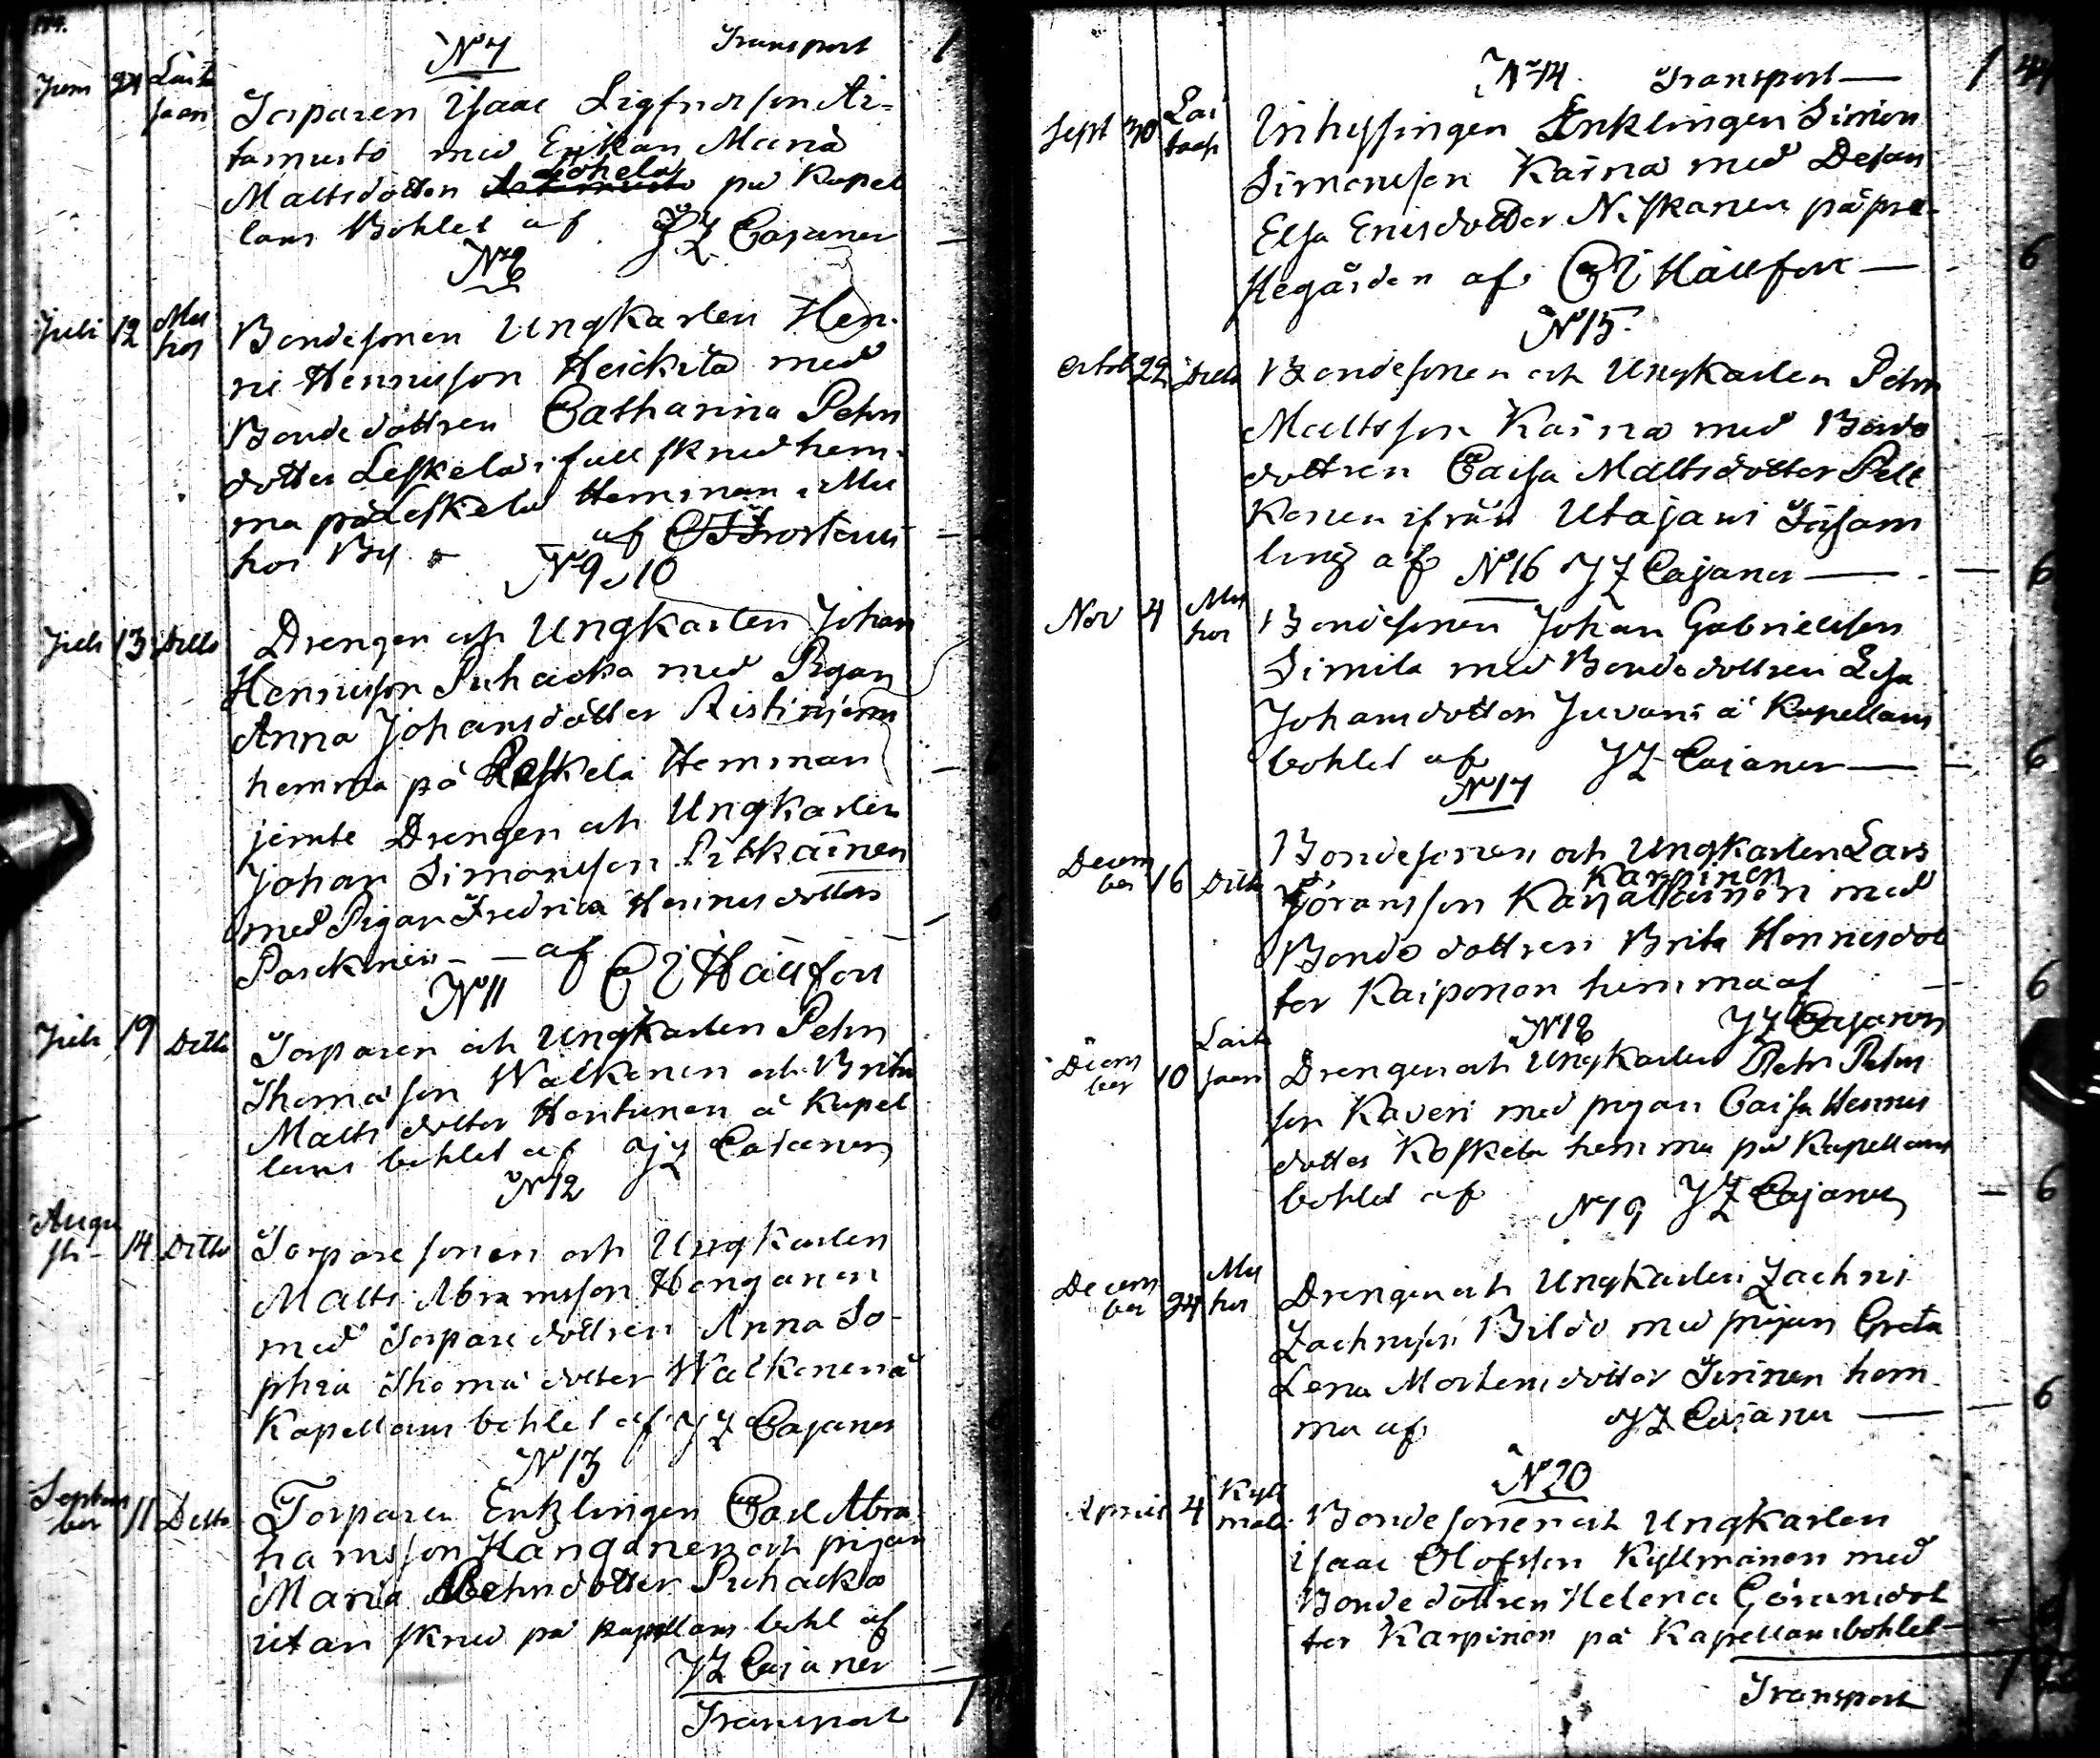 N:o 7 Transport 1
Juni 24 Laitasaari Torparen Isaac Sigfridsson Ai-
tamurto med Enkan Maria
Mattsdotter Ahohela på Kapel
lans Bohlet af J Z Cajaner
N:o 8
Juli 12 Muhos Bondesonen Ungkarlen Hen-
ric Henricsson Heickila med
Bondedottren Catharina Pehrs
dotter Leskelä i full skrud hem-
ma på Leskela Hemman i Mu
hos By af C F Frosterus
N:o 9 o 10
Juli 13 Ditto Drengen och Ungkarlen Johan
Henricsson Puhacka med Pigan
Anna Johansdotter Ristinjemi
hemma på Leskela Hemman
jemte Drengen och Ungkarlen
Johan Simonsson Pitkäinen
med Pigan Fredrica Henricsdotter
Paschinen af C E Hällfors
N:o 11
Juli 19 Ditto Torparen och Ungkarlen Pehr
Thomasson Walkenen och Brita
Matts dotter Hentunen å Kapel
lans bohlet af J Z Cajaner
N:o 12
Augusti 14 Ditto Torparesonen och Ungkarlen
Matts Abramsson Honganen
med Torparedottren Anna So-
phia Thomædotter Walkenen å
Kapellans bohlet af J Z Cajaner
N:o 13
September 11 Ditto Torparen Enklingen Carl Abra
hamsson Hånganen och pigan
Maria Pehrsdotter Puhacka
utan skrud på Kapellans bohl af
J Z Cajaner
Transport 1
N:o 14 Transport 1 44
Sept 30 Laitasaari Inhysingen Enklingen Simon
Simonsson Kaina med Dejan
Elsa Ericsdotter Niskanen på pre-
stegården af C E Hällfors 6
N:o 15
Octob 22 Ditto Bondesonen och Ungkarlen Pehr
Mattsson Kaina med Bonde
dottren Caisa Mattsdotter Pelt
konen ifrån Utajarvi Församl
ling af J Z Cajaner 6
N:o 16
Nov 4 Muhos Bondesonen Johan Gabrielsson
Simila med Bondedottren Lisa
Johansdotter Juvani å Kapellans
bohlet af J Z Cajaner 6
N:o 17
December 16 Ditto Bondesonen och Ungkarlen Lars
Karpinen
Göransson med
Bondedottren Brita Henricsdot
ter Kaiponen hemma af 6
J Z Cajaner
N:o 18
December 10 Laitasaari Drengen och Ungkarlen Pehr Pehrs
son Kaveri med pigan Caisa Henrics
dotter Koskela hemma på Kapellans
bohlet af J Z Cajaner 6
N:o 19
December 24 Muhos Drengen och Ungkarlen Zachris
Zachrisson Bildo med pigan Greta
Lena Mortensdotter Ihrinen hem-
ma af J Z Cajaner 6
N:o 20
Aprill 4 Kyllmälä Bondesonen och Ungkarlen
Isaac Olofsson Kyllmänen med
Bondedottren Helena Göransdot
ter Karpinen på Kapellansbohlet
Transport 1